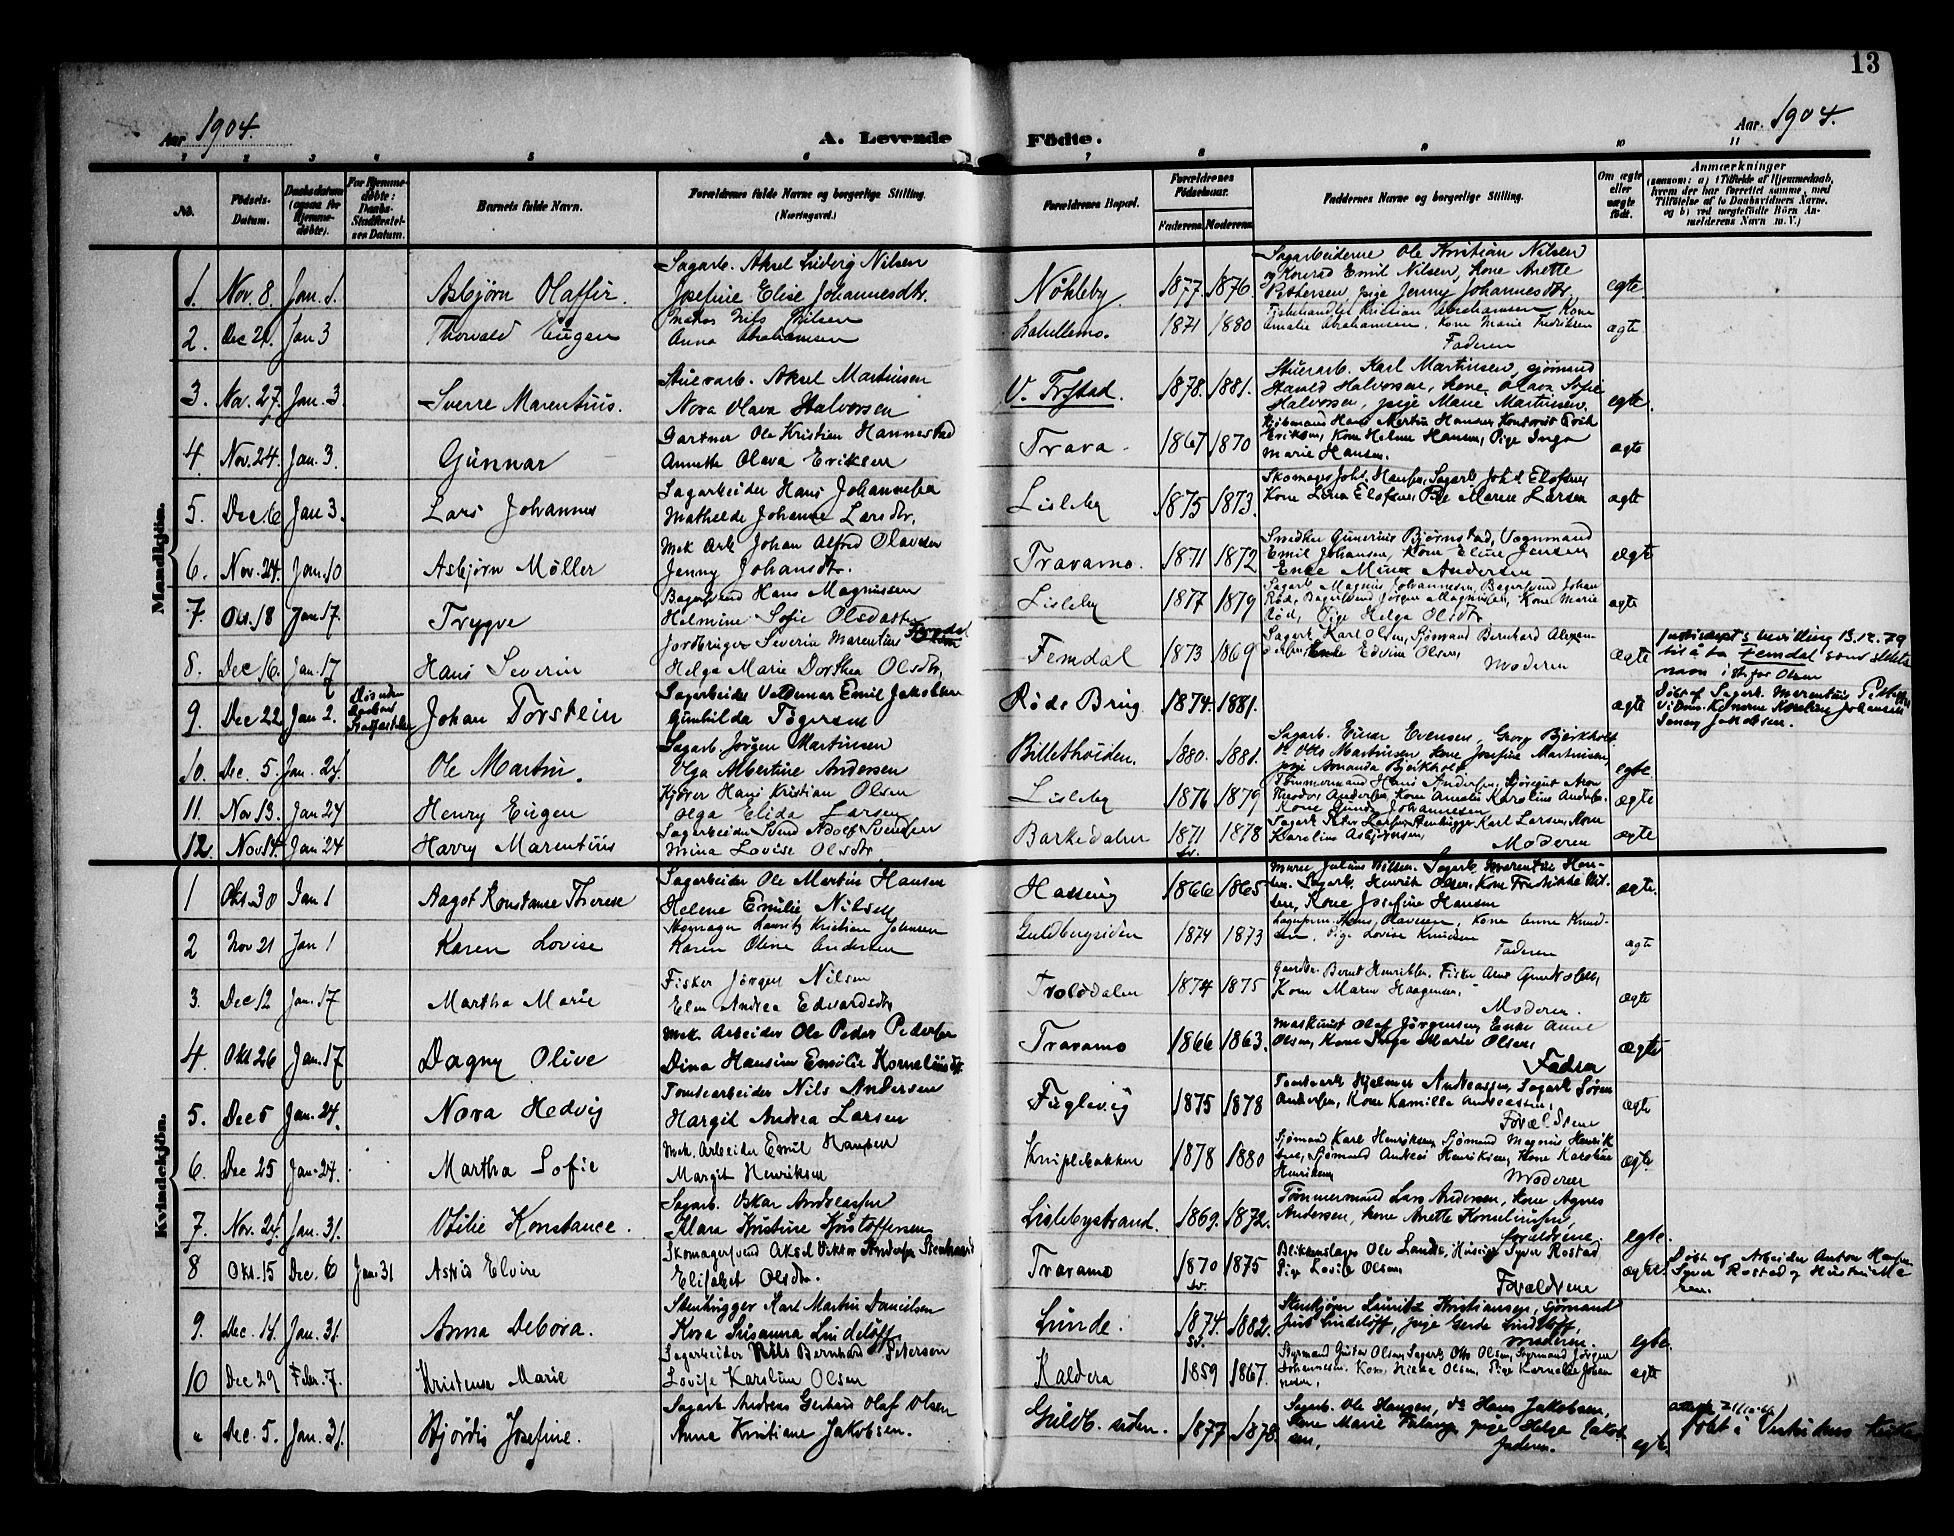 13
Aar 1904.
A. Levende Födte.
Aar. 1904.
1 2 3 4 5 6 7 8 9 10 11
No.
Födsels-Datum.
Daabsdatum (ogsaa for Hjemmedöbte).
For Hjemmedöbte: Daabs-Stadfæstelses Datum.
Barnets fulde Navn.
Forældrenes fulde Navne og borgerlige Stilling.
(Næringsvei.)
Forældrenes Bopæl.
Forældrenes Födselsaar.
Faderens Moderens
Faddernes Navne og borgerlige Stilling.
Om ægte eller uægte födt.
Anmærkninger
(saasom: a) i Tilfælde af Hjemmedaab, hvem der har forrettet samme, med Tilföielse af to Daabsvidners Navne, og b) ved uægtefödte Börn Anmelderens Navn m. V.)
Mandkjön.
1. Nov. 8. Jan. 1. Asbjørn Olaffir. Sagarb. Aksel Ludvig Nilsen
Josefine Elise Johannesdtr. Nökleby 1877. 1876. Sagarbeiderne Ole Kristian Nilsen
og Konrad Emil Nilsen, kone Anette
Pettersen, pige Jenny Johannesdtr. egte.
2. Dec 21. Jan 3 Thorvald Eugen Nils Nilsen
Anna Abrahamsen Labellemo. 1871 1880 Fiskehandler Kristian Abrahamsen Kone
Amalie Abrahamsen, Kone Marie Fredriksen
Faderen ægte
3. Nov. 27. Jan. 3. Sverre Marentius. Stuevarb. Aksel Martinsen
Nora Olava Halvorsen V. Frstad. 1878. 1881. Stuerarb. Karl Martinsen, sjömand
Harald Halvorsen, kone Olava Sofie
Halvorsen, pige Marie Martinsen. egte.
4. Nov. 24. Jan. 3. Gunnar Gartner Ole Kristian Hannestad
Annette Olava Eriksen Trara. 1867 1870 Hans Martin Hansen
Eriksen, Kone Helene Hansen, Pige Inga
Marie Hansen. ægte
5. Dec. 6 Jan 3. Lars Johannes Sagarbeider Hans Johannesen
Mathilde Johanne Larsdtr. Lisleby 1875 1873. Skomager Joh. Hansen, Sagarb. Joh. Elofsen,
Kone Lina Elofsen, Pige Maren Larsen ægte
6. Nov. 24. Jan. 10 Asbjørn Möller Mek Arb Johan Alfred Olavesen
Jenny Johansdtr. Traramo. 1871 1872 Smedker Gunerius Bjørnstad, Vognmand
Emil Johansen, Kone Eline Jensen
Enke Mina Andersen ægte
7. Okt. 18 Jan 17. Trygve Bagersvend Hans Magnussen
Helmine Sofie Olsdatter Lisleby 1877 1879 Sagarb. Magnus Johannesen Bagersvend Johan
Röd, Bagersvend Jørgen Magnussen, Kone Marie
Röd, Pige Helga Olsdtr ægte
8. Dec 16. Jan. 17 Hans Severin Jordbruger Severin Marentius
Helga Marie Dorthea Olsdtr. Femdal 1873 1869 Sagarb. Karl Olsen, Sjømand Bernhard
Enke Edvine Olsen, Moderen ægte Justisdept.s bevilling 13.12.79
til å ta Femdal som slekts
navn istfor Olsen
9. Dec 22 Jan 2. Johan Torstein Sagarbeider Valdemar Emil Jakobsen
Gunhilda Tögersen Röde Brug 1874. 1881. ægte Döbt af Sagarb. Marentius
Konerne Karoline Johansen
Jenny Jakobsen.
10. Dec. 5. Jan. 24. Ole Martin. Sagarb. Jörgen Martinsen
Olga Albertine Andersen Billetholden. 1880. 1881. Sagarb. Einar Evensen, Georg Bjerkholt
Otto Martinsen, kone Josefine Martinsen
pige Amanda Bjerkholt egte.
11. Nov 13. Jan 24 Henry Eugen Kjörer Hans Kristian Olsen
Olga Elida Larsen Lisleby 1876 1879 Tömmermand Hans Andersen,
Theodor Andersen, Kone Amalie Karoline Anders.
Kone Gunda Johannesen ægte
12. Nov 14. Jan 24 Harry Marentius Sagarbeider Svend Adolf Svendsen
Mina Lovise Olsdtr. Barkedalen 1871 sv. 1878 Sagarb Peter Larsen, Stenhugger Karl Larsen, Kone
Karoline Asbjørnsen, Moderen ægte
Kvindekjön.
1 Okt. 30 Jan 1 Aagot Konstanse Therese Sagarbeider Ole Martin Hansen
Helene Emilie Nilsen Hassing 1866 1865 Murer Julius Nilsen. Sagarb. Marentius Hansen.
Sagarb. Henrik Olsen, Kone Fredrikke Nilsen,
Kone Josefine Hansen ægte.
2 Nov 21 Jan 1 Karen Lovise Skomager Lauritz Kristian Johansen
Karen Oline Andersen Guldbergsiden 1874 1873 Hans Olavesen, Kone Anne Knudsen,
Pige Lovise Knudsen
Faderen ægte
3. Dec 12 Jan. 17 Martha Marie Fisker Jørgen Nilsen
Elen Andrea Edvardsdtr Trolddalen 1874 1875 Bernt Henriksen. Fisker
Kone Maren Haagensen,
Moderen. ægte
4. Okt 26 Jan. 17 Dagny Olive Mek. Arbeider Ole Peder Pedersen
Dina Hansine Emilie Korneliusdtr. Traramo 1866 1863. Maskinist Olaf Jørgensen, Enke Anne
Olsen, Kone Inga Marie Olsen,
Faderen ægte
5. Dec 5 Jan. 24. Nora Hedvig Tomtearbeider Nils Andersen
Hargil Andrea Larsen Fuglevig 1875 1878 Tomtearb. Hjalmar Andreassen, Sagarb. Sören
Andersen, Kone Kamilla Andreassen,
Forældrene ægte
6 Dec 25 Jan. 24. Martha Sofie Mek. Arbeider Emil Hansen
Margit Henriksen Kniplebakken 1878 1880 Sjömand Karl Henriksen, Sjömand Magnus Henriksen,
Sjömand Andreas Henriksen, Kone Karoline
Henriksen, Moderen ægte
7. Nov. 24. Jan. 31. Otilie Konstance. Sagarb. Oskar Andreassen
Klara Kristine Kristoffersen Lislebystrand. 1869. 1872. Tømmermand Lars Andersen, kone Agnes
Andersen, kone Anette Korneliusen,
foreldrene. egte.
8 Okt. 15 Dec. 6 Jan. 31 Astrid Elvire Skomagersvend Aksel Viktor
Elisabet Olsdtr. Traramo 1870 sv. 1875 Blikkenslager Ole Lande, Syver Rostad
Pige Lovise Olsen
Forældrene ægte. Döbt af Arbeider Anton Hansen
Syver Rostad og
9. Dec. 14. Jan. 31. Anna Debora. Stenhugger Karl Martin Danielsen
Kora Susanna Lindelöff Lunde. 1874. sv. 1882. Lauritz Kristiansen, sjömand
Lindelöff, pige Gerda Lindelöff,
moderen. egte.
10 Dec 29 Febr. 7. Kristense Marie Sagarbeider Nils Bernhard Petersen
Lovise Karoline Olsen Kaldera 1859 1867. Styrmand Gustav Olsen, Sagarb. Otto Olsen, Styrmand Jörgen
Johannesen, Kone Hilda Olsen, Pige Kornelie Johannesen, ægte
" Dec. 5. Jan. 31. Hjördis Josefine. Sagarb Andreas Gerhard Olaf Olsen
Anna Kristiane Jakobsen. Guldb. siden. 1877 1878. Sagarb. Ole Hansen, do Hans Jakobsen,
kone Marie, pige Helga Jakobsen,
faderen. egte. Döbt i Vestsidens Kirke